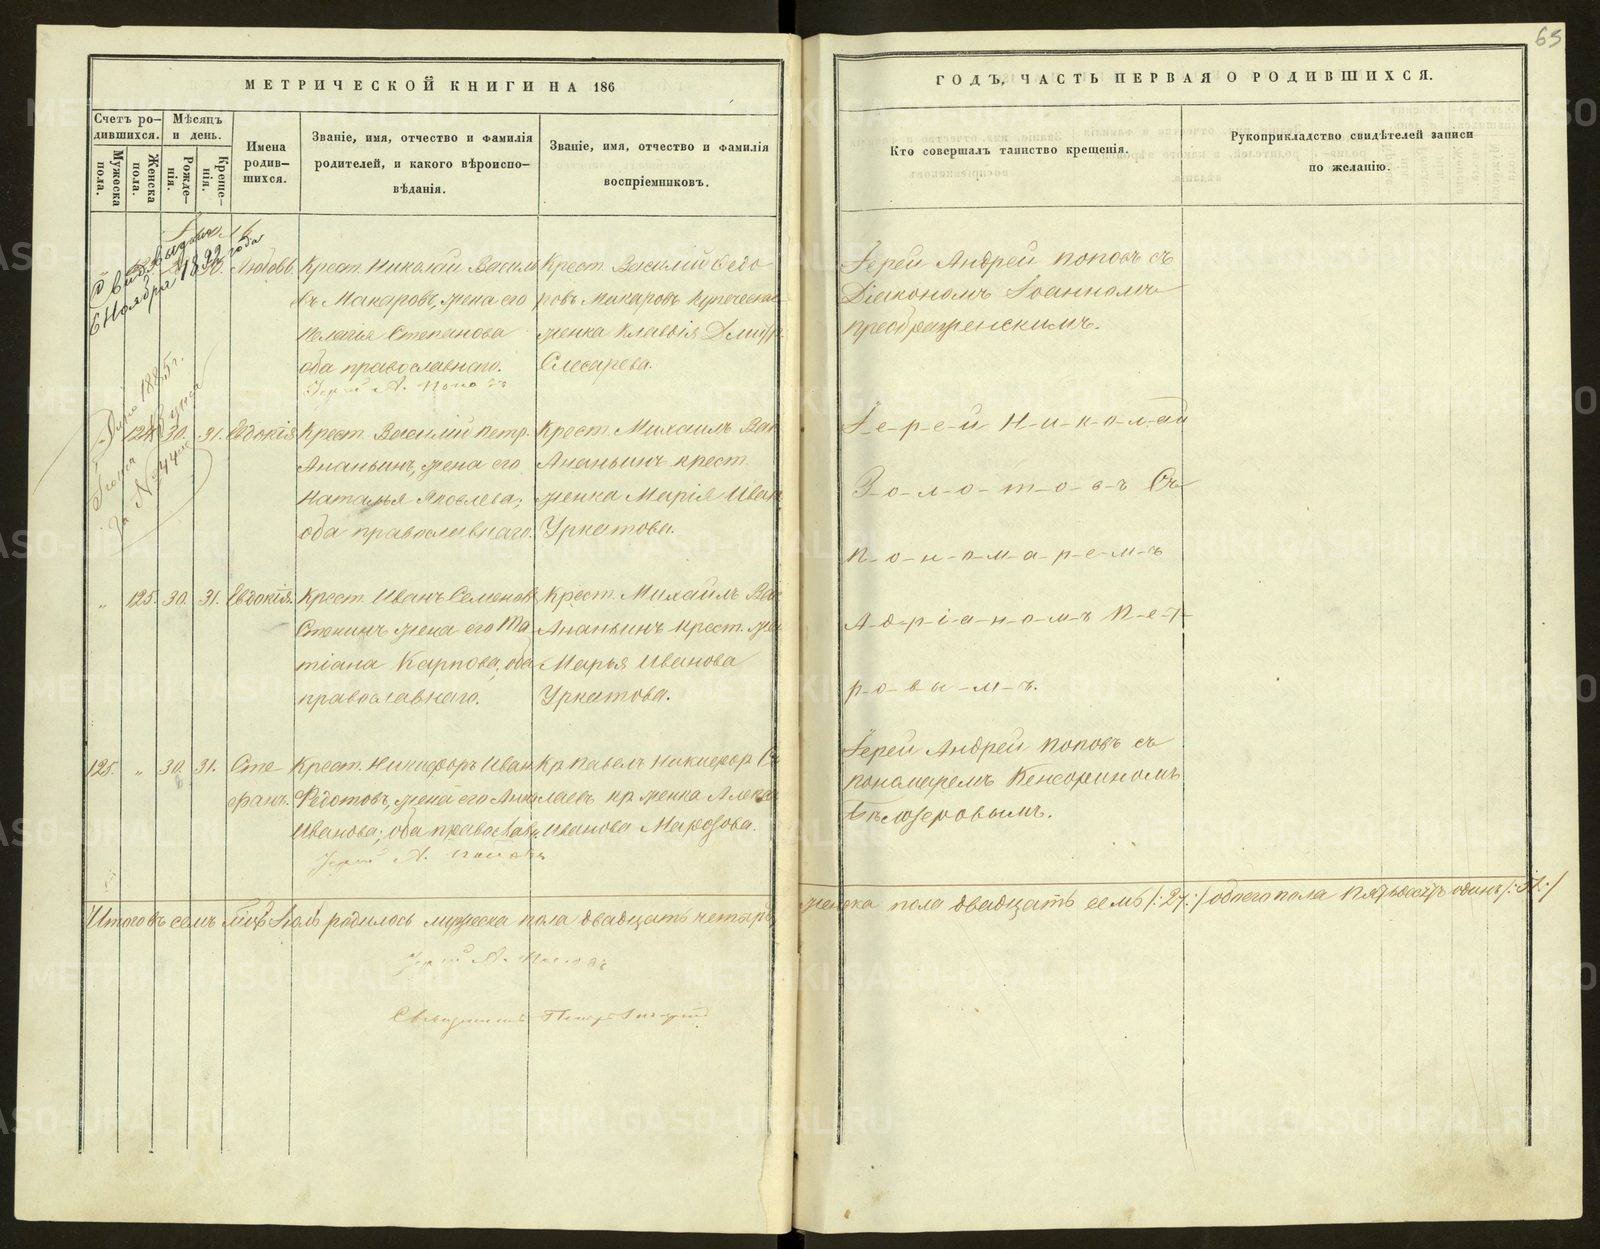 65
МЕТРИЧЕСКОЙ КНИГИ НА 186
ГОДЪ, ЧАСТЬ ПЕРВАЯ О РОДИВШИХСЯ.
Счетъ ро-
дившихся.
Мужеска
пола.
Женска
пола.
Мѣсяцъ
и день.
Рожде-
нія.
Креще-
нія.
Имена
родив-
шихся.
Званіе, имя, отчество и фамилія
родителей, и какого вѣроиспо-
вѣданія.
Званіе, имя, отчество и фамилія
воспріемниковъ.
Кто совершалъ таинство крещенія.
Рукоприкладство свидѣтелей записи
по желанію.
6 Ноября 1892 года
30. Любовь.
Крест. Николай Васильи
въ Макаровъ, жена его
Пелагія Степанова
оба православнаго.
Іерей А. Поповъ
Крест. Василій Ѳедо
ровъ Макаровъ Купеческая
женка Клавдія Дмитр.
Слесарева.
Іерей Андрей Поповъ съ
Діакономъ Іоанномъ
Преображенскимъ.
Дано 1885 г.
124. 30. 31. Евдокія
Крест. Василій Петр.
Ананьинъ, жена его
Наталья Яковлева;
оба православнаго.
Крест. Михаилъ Вас
Ананьинъ крест.
женка Марія Иван
Уркатова.
І-е-р-е-й Н-и-к-о-л-ай
З-о-л-о-т-о-в-ъ Съ
П-о-н-о-м-а-р-е-м-ъ
А-д-р-і-а-н-о-м-ъ П-е-т-
р-о-в-ы-м-ъ.
„ 125. 30. 31. Евдокія.
Крест. Иванъ Семенов
Стекинъ жена его Та
тіана Карпова, оба
православнаго.
Крест. Михайлъ Вас
Ананьинъ крест. жен
Марья Иванова
Уркатова.
125. „ 30. 31. Сте
фанъ.
Крест. Никифоръ Иван
Ѳедотовъ, жена его Анна
Иванова; оба православ.
Іерей А. Поповъ
Кр Павелъ Никифор
лаевъ кр женка Алекса
Иванова Марозова.
Іерей Андрей Поповъ съ
пономаремъ Кенсориномъ
Бѣлозеровымъ.
Итого въ семъ мцѣ Іюль родилось мужеска пола двадцать четыре,
женска пола двадцать семь /:27:/ обоего пола пятьдесятъ одинъ /:51:/
Іерей А. Поповъ
Священникъ Петръ